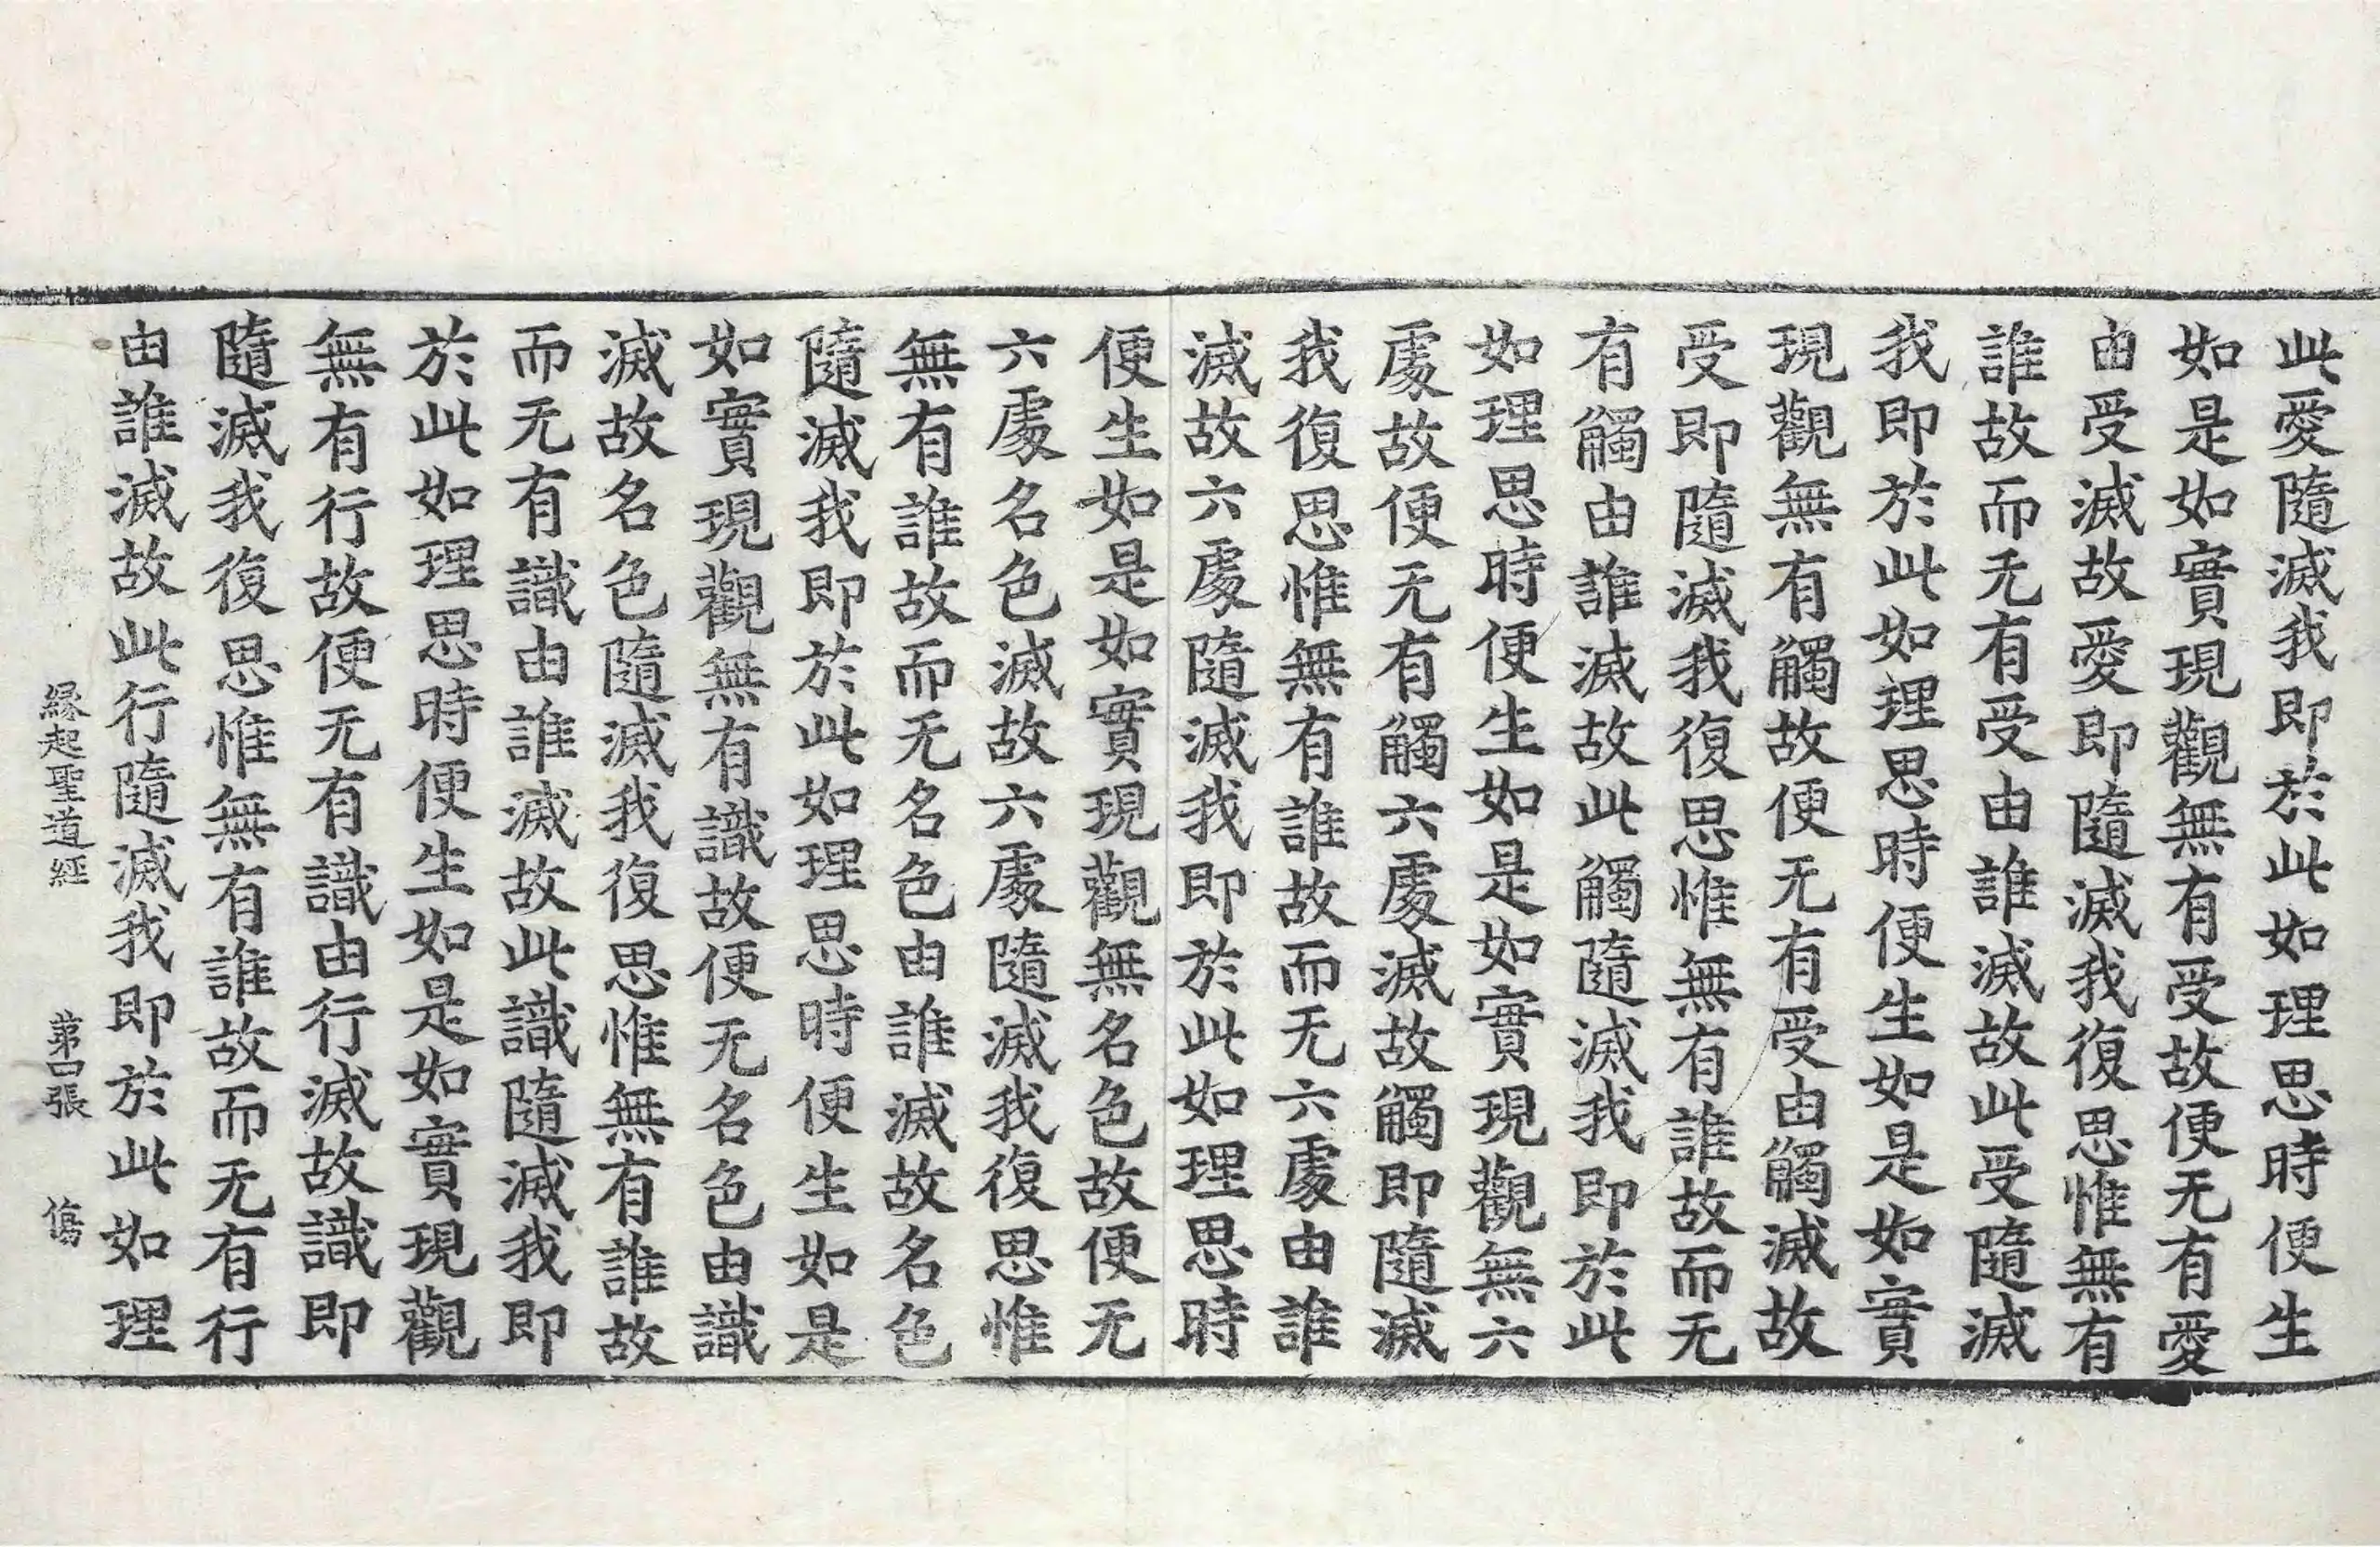 此愛隨滅我即於此如理思時便生
如是如實現觀無有受故便无有愛
由受滅故愛即隨滅我復思惟無有
誰故而无有受由誰滅故此受隨滅
我即於此如理思時便生如是如實
現觀無有觸故便无有受由觸滅故
受即隨滅我復思惟無有誰故而无
有觸由誰滅故此觸隨滅我即於此
如理思時便生如是如實現觀無六
處故便无有觸六處滅故觸即隨滅
我復思惟無有誰故而无六處由誰
滅故六處隨滅我即於此如理思時
便生如是如實現觀無名色故便无
六處名色滅故六處隨滅我復思惟
無有誰故而无名色由誰滅故名色
隨滅我即於此如理思時便生如是
如實現觀無有識故便无名色由識
滅故名色隨滅我復思惟無有誰故
而无有識由誰滅故此識隨滅我即
於此如理思時便生如是如實現觀
無有行故便无有識由行滅故識即
隨滅我復思惟無有誰故而无有行
由誰滅故此行隨滅我即於此如理
緣起聖道經 第四張